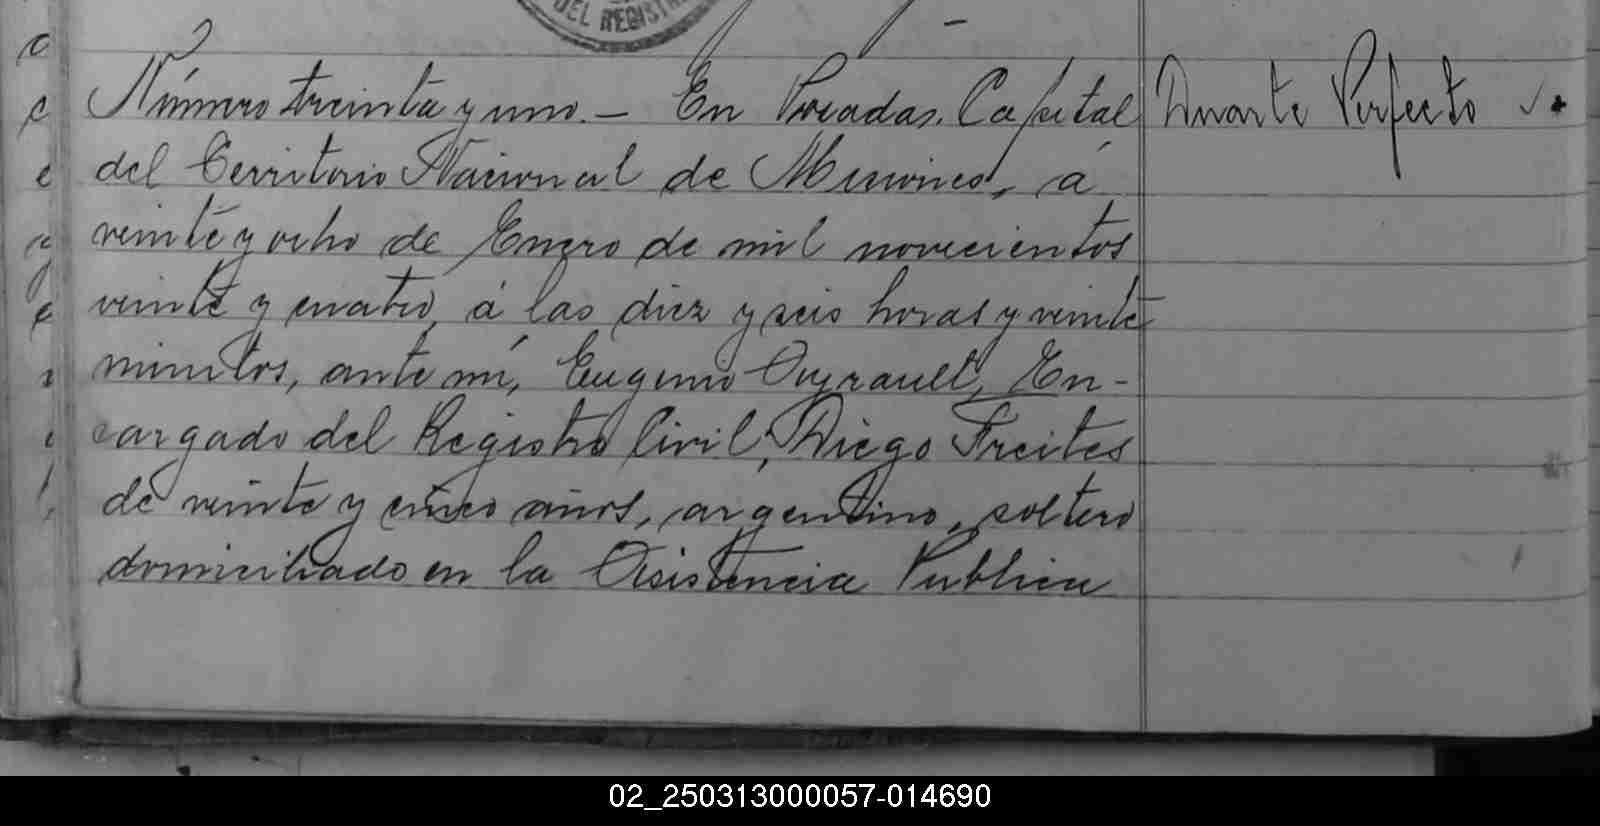 DEL REGISTR
Número treinta y uno. — En Posadas, Capital
Duarte Perfecto
del Territorio Nacional de Misiones, á
veinte y ocho de Enero de mil novecientos
veinte y cuatro, á las diez y seis horas y veinte
minutos, ante mí, Eugenio En-
cargado del Registro Civil, Diego Freites
de veinte y cinco años, argentino, soltero
domiciliado en la Asistencia Publica
02_250313000057-014690